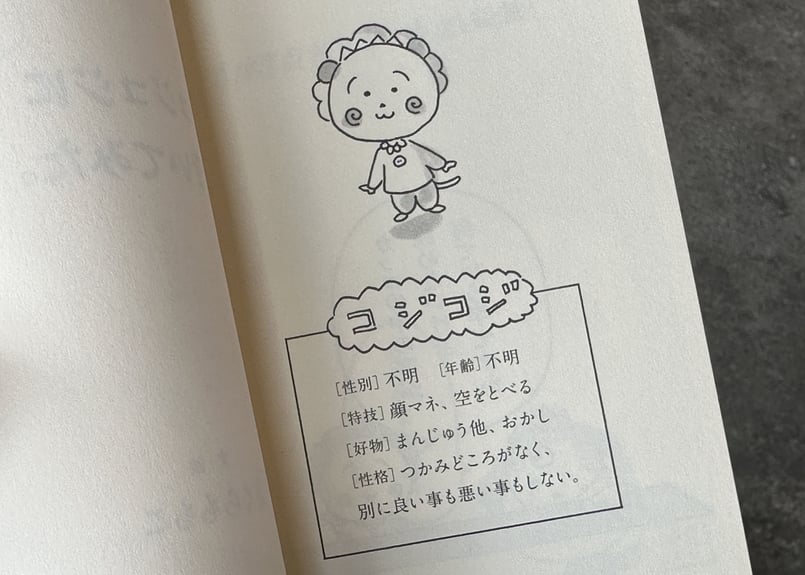 コジコジ
[性別] 不明 [年齢] 不明
[特技] 顔マネ、空をとべる
[好物] まんじゅう他、おかし
[性格] つかみどころがなく、
別に良い事も悪い事もしない。